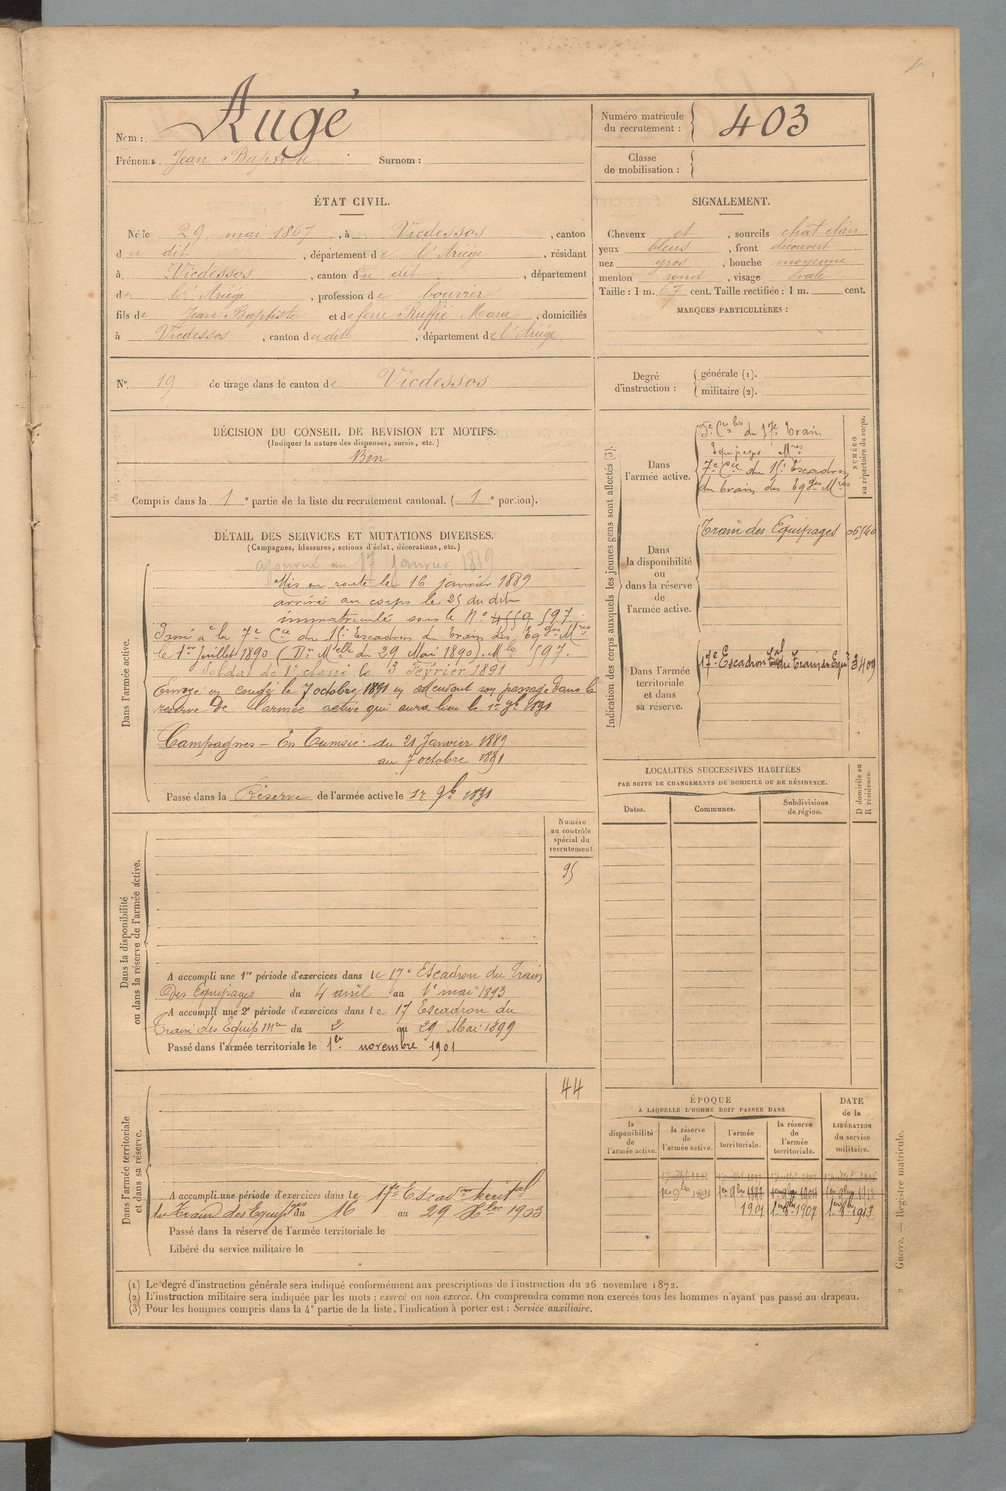 Nom : Augé
Prénoms : Jean Baptiste Surnom :
Numéro matricule du recrutement : 403
Classe de mobilisation :
ÉTAT CIVIL.
Né le 29 mai 1867, à Vicdessos, canton
du dit, département de l'Ariège, résidant
à Vicdessos, canton du dit, département
de l'Ariège, profession de bouvier
fils de Jean Baptiste et de feue Ruffié Marie, domiciliés
à Vicdessos, canton du dit, département de l'Ariège
N° 19 de tirage dans le canton de Vicdessos
SIGNALEMENT.
Cheveux et, sourcils chat clair
yeux bleus, front découvert
nez gros, bouche moyenne
menton rond, visage ovale
Taille : 1 m. 67 cent. Taille rectifiée : 1 m. cent.
MARQUES PARTICULIÈRES :
Degré d'instruction : générale (1).
militaire (2).
DÉCISION DU CONSEIL DE REVISION ET MOTIFS.
(Indiquer la nature des dispenses, sursis, etc.)
Bon
Compris dans la 1e partie de la liste du recrutement cantonal. (1e portion).
DÉTAIL DES SERVICES ET MUTATIONS DIVERSES.
(Campagnes, blessures, actions d'éclat, décorations, etc.)
Dans l'armée active.
ajourné au 17 janvier 1889
Mis en route le 16 janvier 1889
arrivé au corps le 25 du dit
immatriculé sous le N° 597.
Passé à la 7e Cie du 16e Escadron du train des Eqges Mres
le 1er Juillet 1890 (Don Mlle du 29 Mai 1890). Mle 597.
Soldat de 1e classe le 3 Février 1891
Envoyé en congé le 7 octobre 1891 en attendant son passage dans la
réserve de l'armée active qui aura lieu le 1er 9bre 1891
Campagnes – En Tunisie : du 21 Janvier 1889
au 7 octobre 1891
Passé dans la Réserve de l'armée active le 1er 9bre 1891
Indication des corps auxquels les jeunes gens sont affectés (3).
NUMÉRO au répertoire du corps.
Dans l'armée active.
5e Cie bis du 17e train
Equipages Mres
7e Cie du 16e Escadron
du train des Eqges Mres
Dans la disponibilité ou dans la réserve de l'armée active.
Train des Equipages
Dans l'armée territoriale et dans sa réserve.
17e Escadron Tal du Train des Equip. 3409
LOCALITÉS SUCCESSIVES HABITÉES
PAR SUITE DE CHANGEMENTS DE DOMICILE OU DE RÉSIDENCE.
Dates. Communes. Subdivisions de région. D domicile ou R résidence.
Numéro au contrôle spécial du recrutement
95
Dans la disponibilité ou dans la réserve de l'armée active.
A accompli une 1re période d'exercices dans le 17e Escadron du Train
des Equipages du 4 avril au 1er mai 1893
A accompli une 2e période d'exercices dans le 17 Escadron du
Train des Equip Mres du 2 au 29 Mai 1899
Passé dans l'armée territoriale le 1er novembre 1901
44
Dans l'armée territoriale et dans sa réserve.
A accompli une période d'exercices dans le 17e Escadron territal
du Train des Equipages du 16 au 29 1903
Passé dans la réserve de l'armée territoriale le
Libéré du service militaire le
ÉPOQUE
À LAQUELLE L'HOMME DOIT PASSER DANS
la disponibilité de l'armée active. la réserve de l'armée active. l'armée territoriale. la réserve de l'armée territoriale. DATE de la LIBÉRATION du service militaire.
1er 9bre 1891
1901 1er 9bre 1907 1er 9bre 1913
(1) Le degré d'instruction générale sera indiqué conformément aux prescriptions de l'instruction du 26 novembre 1872.
(2) L'instruction militaire sera indiquée par les mots : exercé ou non exercé. On comprendra comme non exercés tous les hommes n'ayant pas passé au drapeau.
(3) Pour les hommes compris dans la 4e partie de la liste, l'indication à porter est : Service auxiliaire.
Guerre. — Registre matricule.